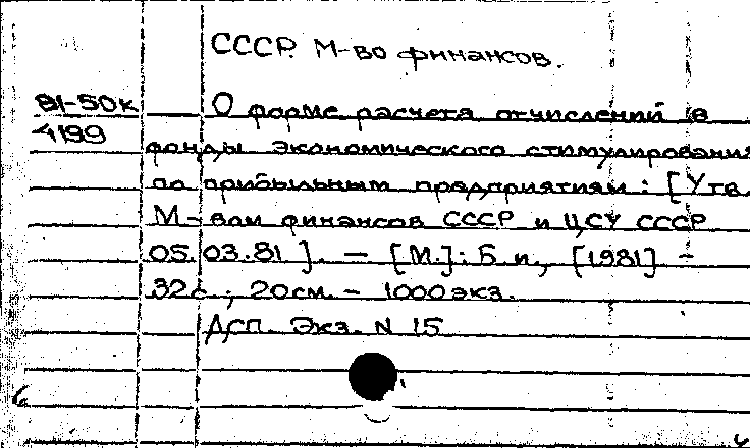 СССР. М-во финансов.
81-50к О форме расчета отчислений в
4199 фонды экономического стимулирования
по прибыльным предприятиям: [Утв.
М-вом финансов СССР и ЦСУ СССР
05.03.81]. — [М.]: Б. и., [1981] -
32с.; 20см. - 1000 экз.
ДСП. Экз. N 15